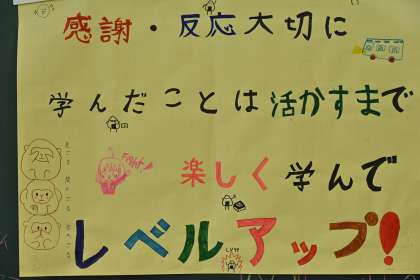 感謝・反応大切に
学んだことは活かすまで
楽しく学んで
レベルアップ!